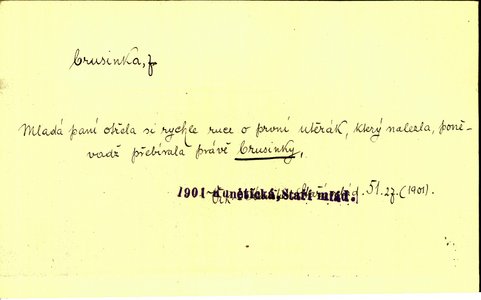 brusinka, f
Mladá paní otřela si rychle ruce o první utěrák, který nalezla, poně-
vadž přebírala právě brusinky.
1901 Kunětická, Staří mlád. 51. 27. (1901).